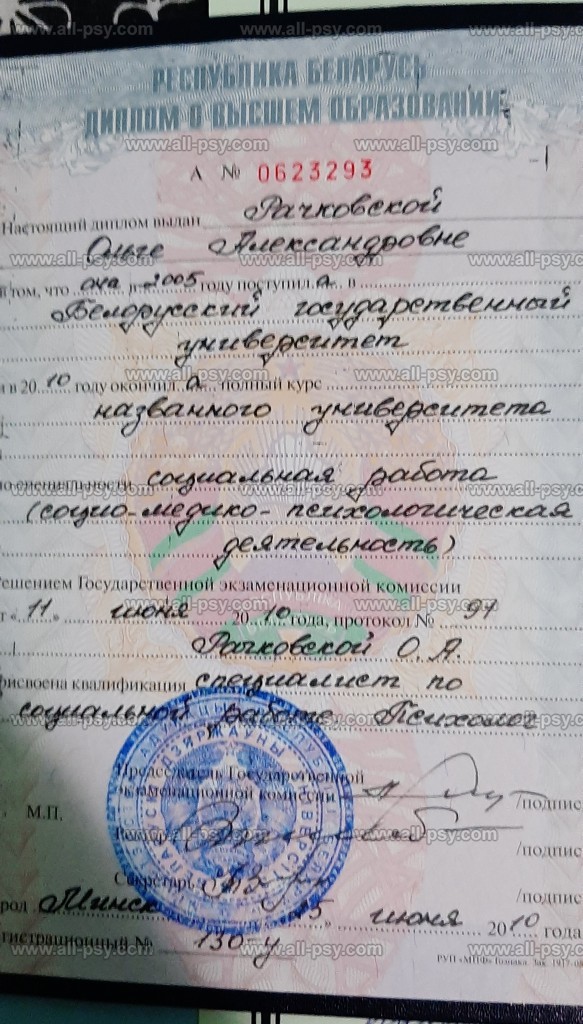 РЕСПУБЛИКА БЕЛАРУСЬ
ДИПЛОМ О ВЫСШЕМ ОБРАЗОВАНИИ
А № 0623293
Настоящий диплом выдан Рачковской
Ольге Александровне
в том, что она в 2005 году поступил а в
Белорусский государственный
университет
и в 2010 году окончил а полный курс
названного университета
по специальности социальная работа
(социо-медико-психологическая
деятельность)
решением Государственной экзаменационной комиссии
от «11» июня 2010 года, протокол № 97
Рачковской О.А.
присвоена квалификация специалист по
социальной работе. Психолог
Председатель Государственной
экзаменационной комиссии /подпис
М.П.
Ректор /подпис
Секретарь /подпис
город Минск 5 июня 2010 года
Регистрационный № 130-у
www.all-psy.com